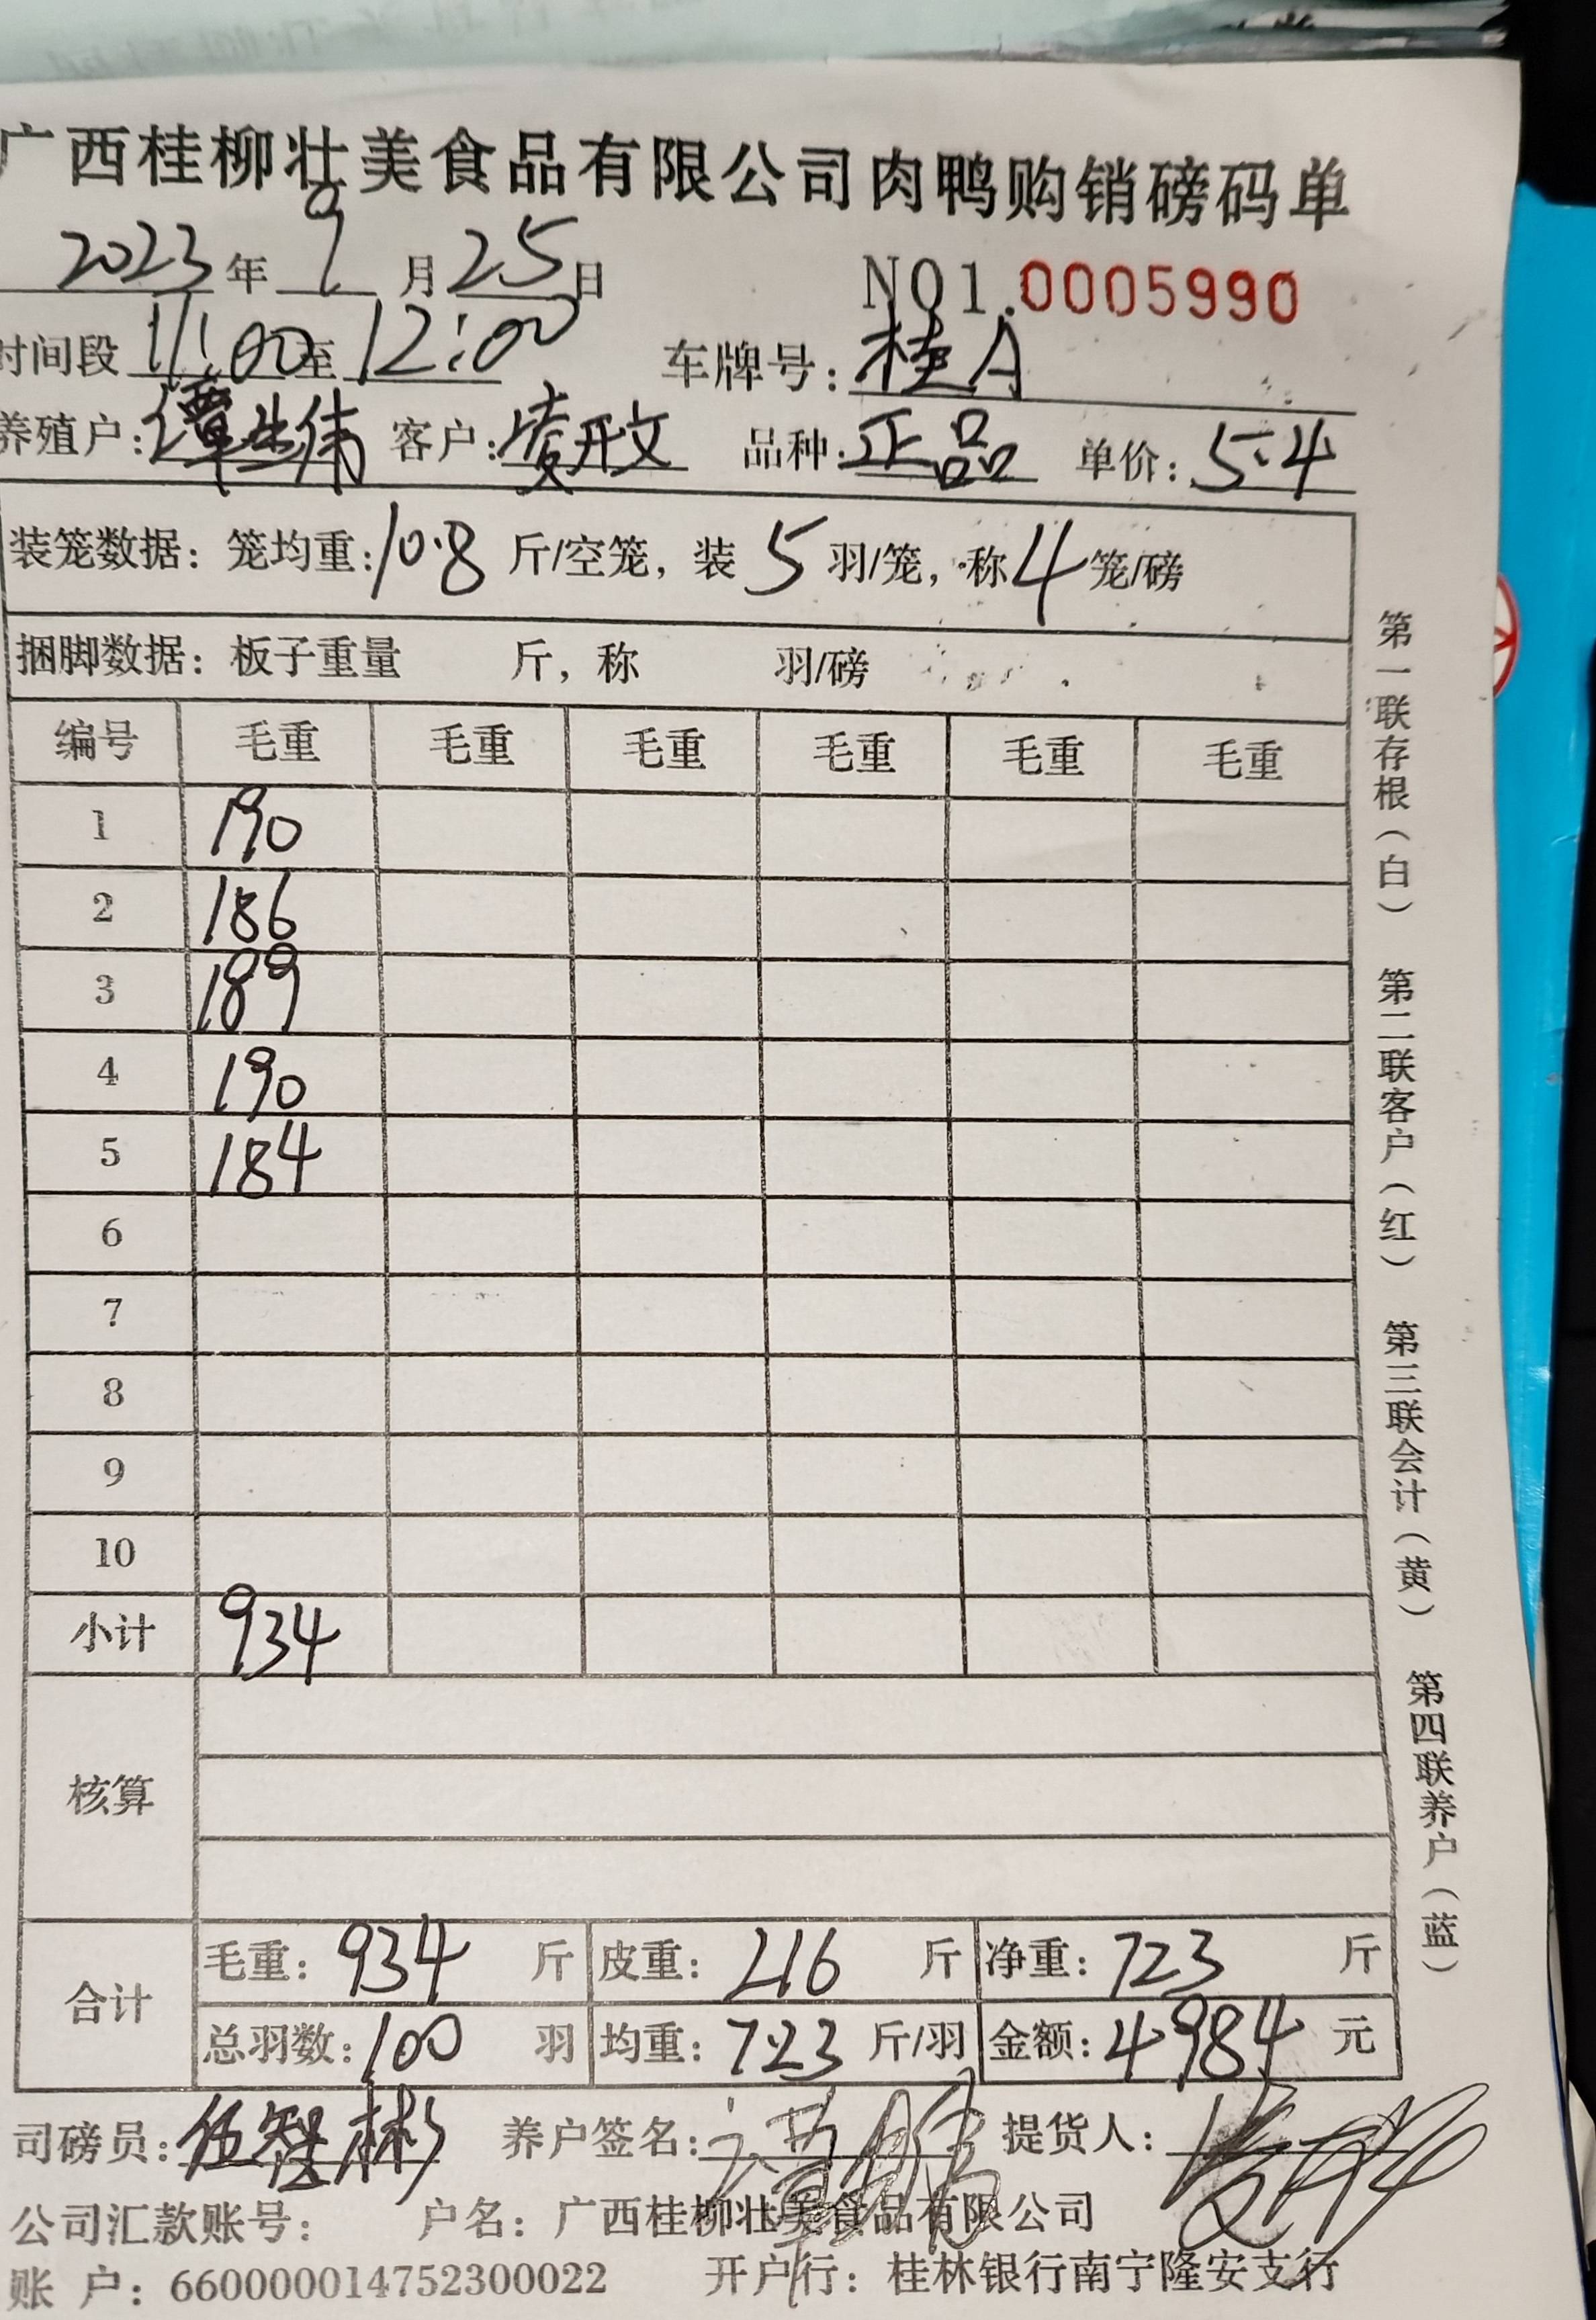 广西桂柳壮美食品有限公司肉鸭购销磅码单
2023年 9 月 25日 NO1.0005990
时间段 11:00至12:00 车牌号:桂A
养殖户:谭生伟 客户:凌开文 品种:正品 单价:5.4
装笼数据:笼均重:10.8 斤/空笼,装 5 羽/笼,称 4 笼/磅
捆脚数据:板子重量 斤,称 羽/磅
编号 毛重 毛重 毛重 毛重 毛重 毛重
1 190
2 186
3 189
4 190
5 184
6
7
8
9
10
小计 934
核算
合计 毛重:934 斤 皮重:216 斤 净重:723 斤
总羽数:100 羽 均重:7.23 斤/羽 金额:4984 元
司磅员:伍智彬 养户签名: 提货人:
公司汇款账号: 户名:广西桂柳壮美食品有限公司
账 户:660000014752300022 开户行:桂林银行南宁隆安支行
第一联存根(白) 第二联客户(红) 第三联会计(黄) 第四联养户(蓝)